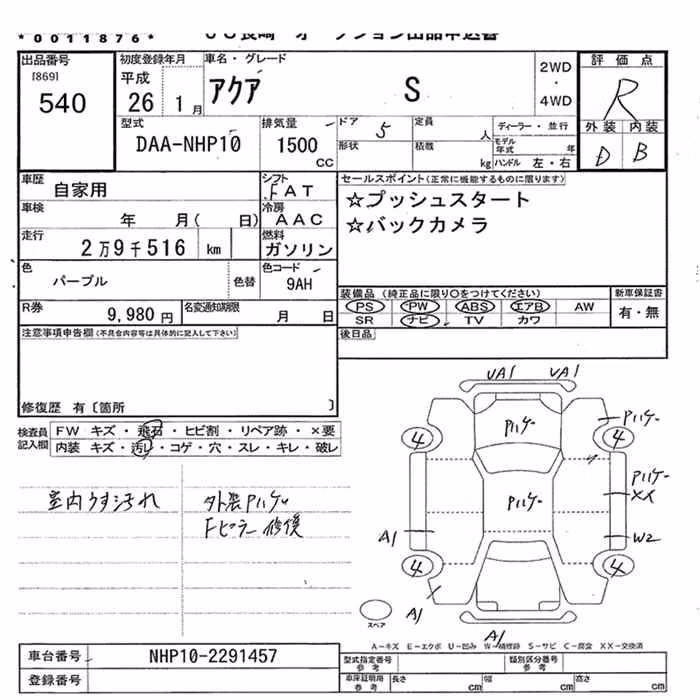 *0011876*
ＪＵ長崎 オークション出品申込書
出品番号
[869]
540
初度登録年月
平成
26 1月
車名・グレード
アクア S
2WD
・
4WD
評価点
R
外装 内装
D B
型式
DAA-NHP10
排気量
1500
CC
ドア
5
形状
定員
人
積載
kg
ディーラー・並行
モデル年式 年
ハンドル 左・右
車歴
自家用
シフト
FAT
車検
年 月( 日)
冷房
AAC
走行
2万9千516 km
燃料
ガソリン
色
パープル
色替
色コード
9AH
R券
9,980円
名変通知期限
月 日
セールスポイント(正常に機能するものに限ります)
☆プッシュスタート
☆バックカメラ
装備品(純正品に限り○をつけてください)
PS PW ABS エアB AW
SR ナビ TV カワ
新車保証書
有・無
後日品
注意事項申告欄(不具合内容等は具体的に記入して下さい)
修復歴 有〔箇所 〕
検査員記入欄
FW キズ・飛石・ヒビ割・リペア跡・×要
内装 キズ・汚レ・コゲ・穴・スレ・キレ・破レ
室内うす汚れ
外装Pハゲ
Fピラー修復
UA1 UA1
Pハゲ
Pハゲ
Pハゲ
Pハゲ
XX
W2
A1
A1
A1
4 4
4 4
スペア
A－キズ E－エクボ U－凹み W－補修跡 S－サビ C－腐食 XX－交換済
車台番号
NHP10-2291457
登録番号
型式指定番号
参考
類別区分番号
参考
車庫証明用
参考
長さ cm
幅 cm
高さ cm